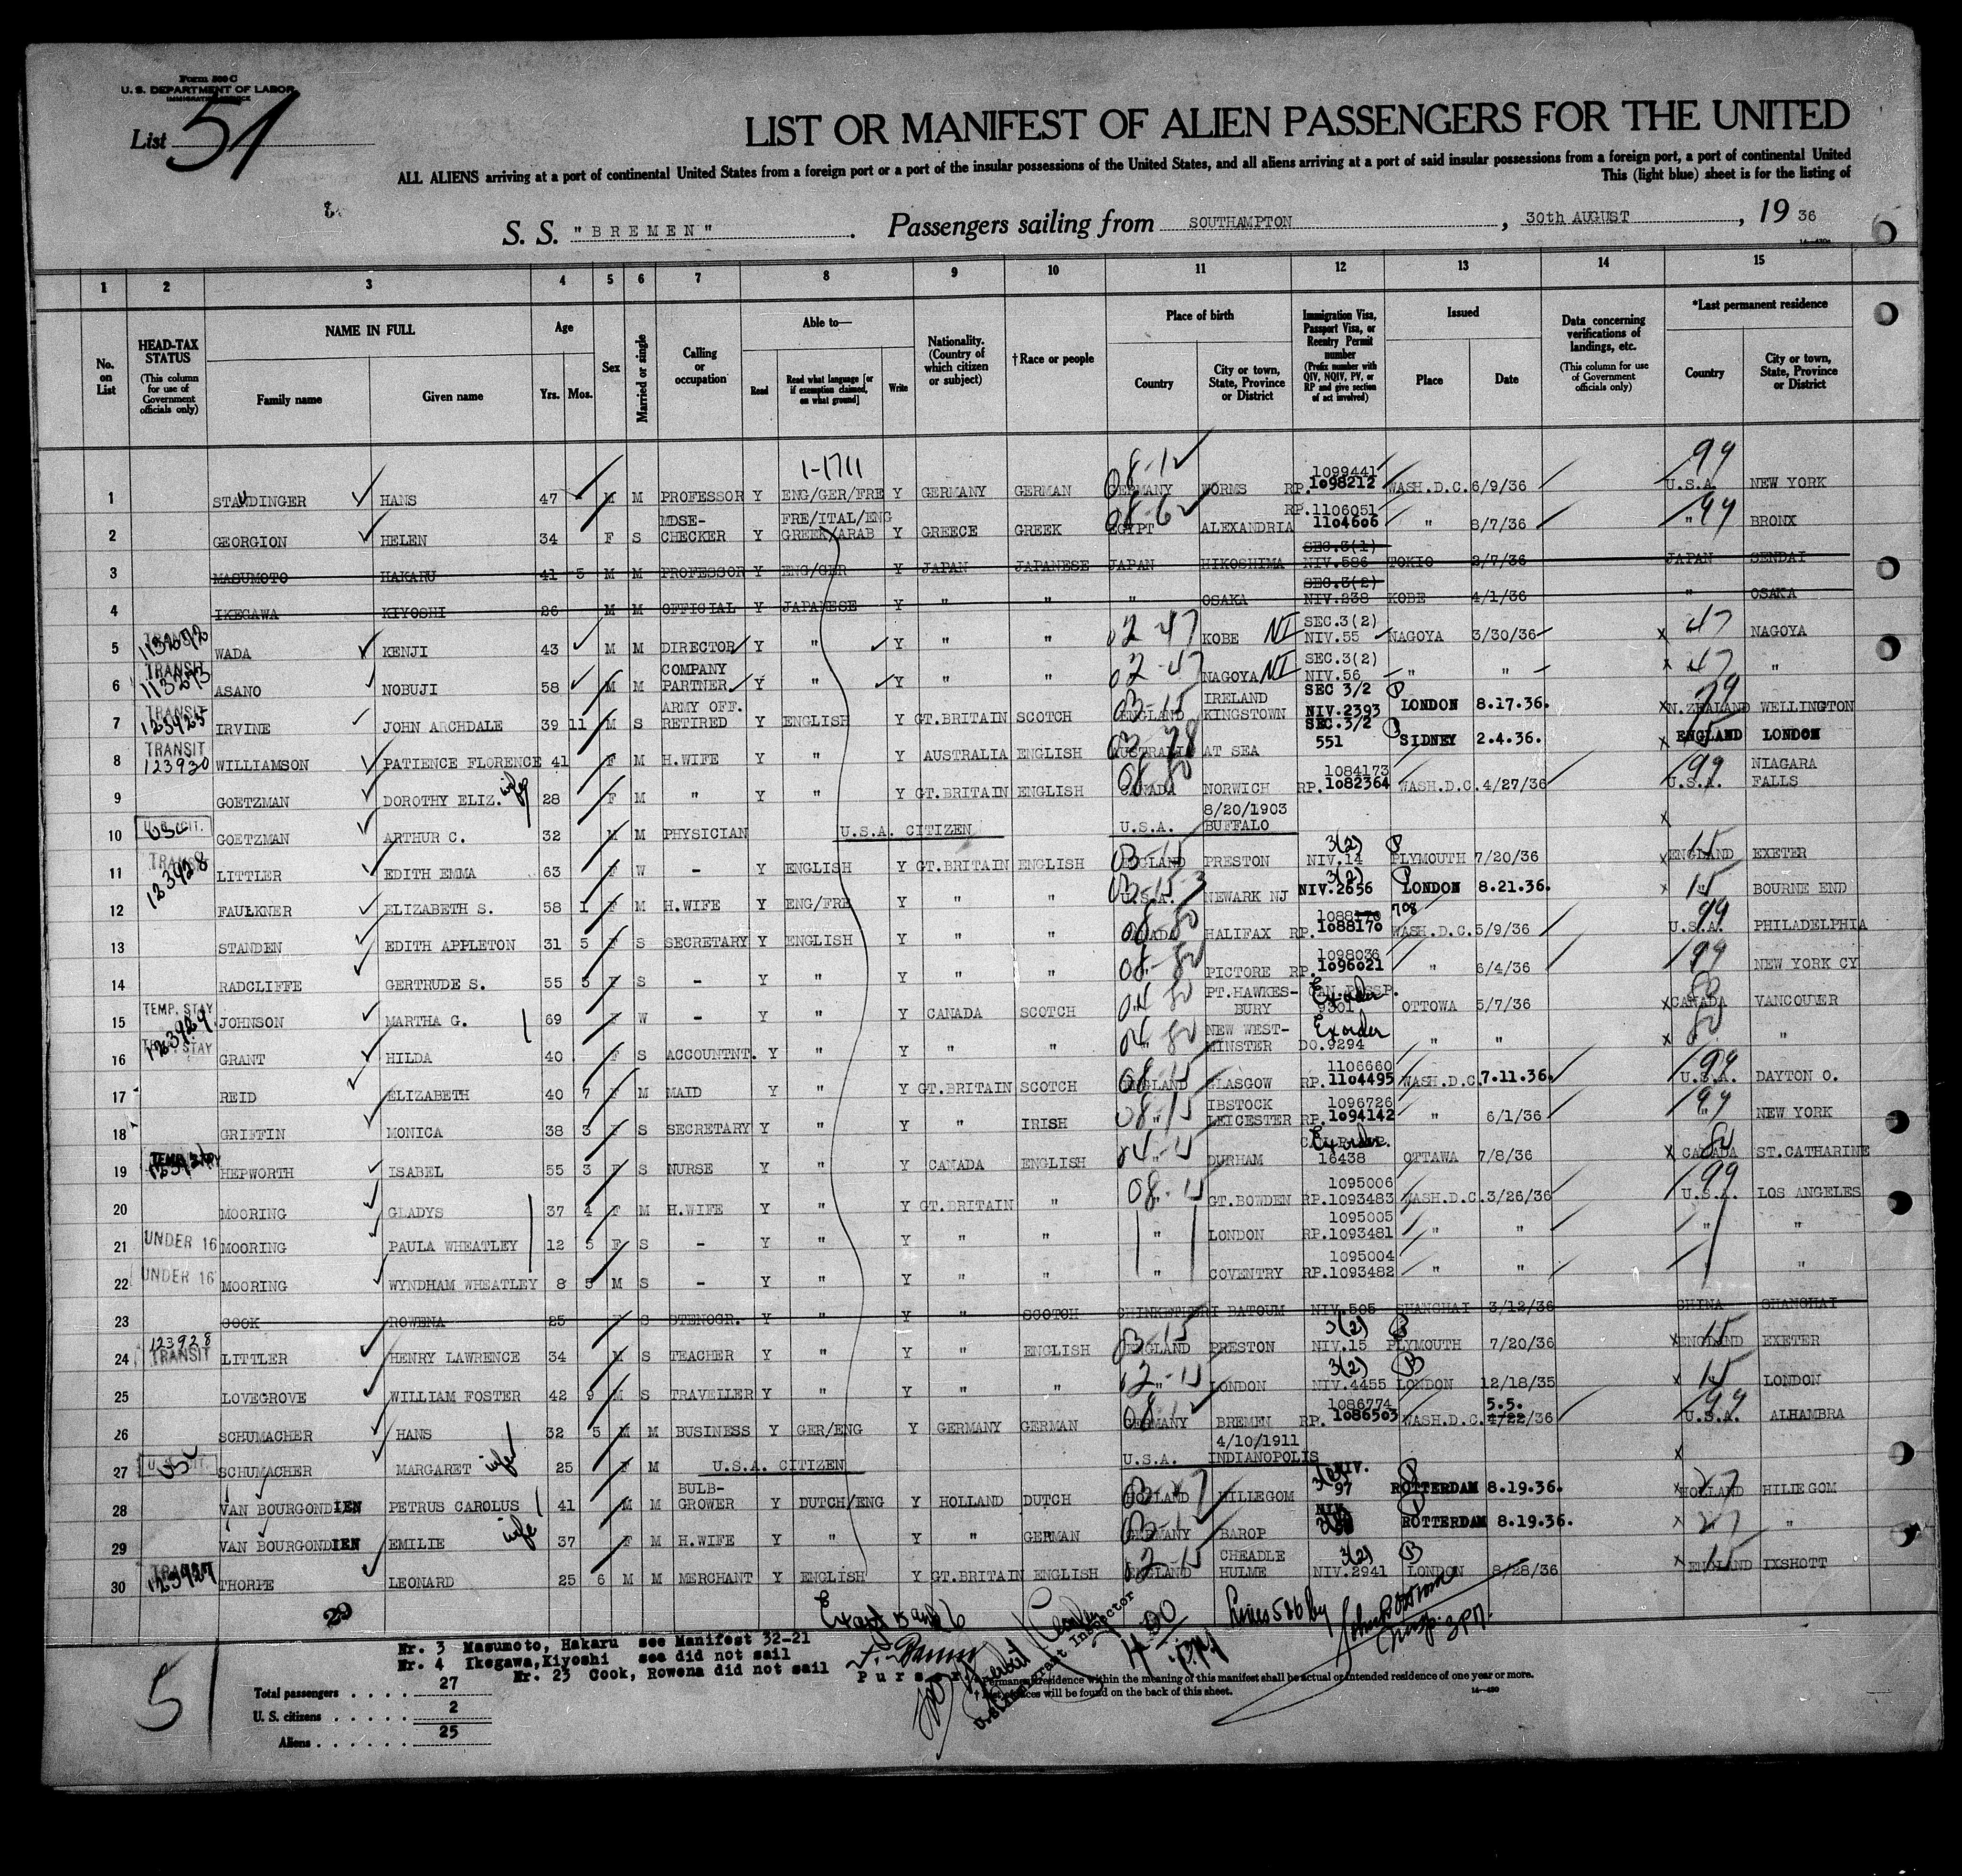 Form 500 C
U. S. DEPARTMENT OF LABOR
IMMIGRATION SERVICE
List 51
LIST OR MANIFEST OF ALIEN PASSENGERS FOR THE UNITED
ALL ALIENS arriving at a port of continental United States from a foreign port or a port of the insular possessions of the United States, and all aliens arriving at a port of said insular possessions from a foreign port, a port of continental United
This (light blue) sheet is for the listing of
S. S. "BREMEN". Passengers sailing from SOUTHAMPTON, 30th AUGUST, 19 36
1 2 3 4 5 6 7 8 9 10 11 12 13 14 15
No. on List
HEAD-TAX STATUS (This column for use of Government officials only)
NAME IN FULL Family name Given name
Age Yrs. Mos.
Sex
Married or single
Calling or occupation
Able to— Read Read what language [or if exemption claimed, on what ground] Write
Nationality. (Country of which citizen or subject)
†Race or people
Place of birth Country City or town, State, Province or District
Immigration Visa, Passport Visa, or Reentry Permit number (Prefix number with QIV, NQIV, PV, or RP and give section of act involved)
Issued Place Date
Data concerning verifications of landings, etc. (This column for use of Government officials only)
*Last permanent residence Country City or town, State, Province or District
1-1711
1 STAUDINGER HANS 47 M M PROFESSOR Y ENG/GER/FRE Y GERMANY GERMAN 08-12 GERMANY WORMS 1099441 RP.1098212 WASH.D.C. 6/9/36 99 U.S.A. NEW YORK
2 GEORGION HELEN 34 F S MDSE-CHECKER Y FRE/ITAL/ENG GREEK/ARAB Y GREECE GREEK 08-62 EGYPT ALEXANDRIA RP.1106051 1104606 " 8/7/36 99 " BRONX
3 MASUMOTO HAKARU 41 5 M M PROFESSOR Y ENG/GER Y JAPAN JAPANESE JAPAN HIKOSHIMA SEC.3(1) NIV.586 TOKIO 2/7/36 JAPAN SENDAI
4 IKEGAWA KIYOSHI 26 M M OFFICIAL Y JAPANESE Y " " " OSAKA SEC.3(2) NIV.238 KOBE 4/1/36 " OSAKA
5 TRANSIT WADA KENJI 43 M M DIRECTOR Y " Y " " 02-47 KOBE NI SEC.3(2) NIV.55 NAGOYA 3/30/36 x 47 NAGOYA
6 TRANSIT 113273 ASANO NOBUJI 58 M M COMPANY PARTNER Y " Y " " 02-47 NAGOYA NI SEC.3(2) NIV.56 " " x 47 "
7 TRANSIT 123925 IRVINE JOHN ARCHDALE 39 11 M S ARMY OFF. RETIRED Y ENGLISH Y GT.BRITAIN SCOTCH 03-15 ENGLAND IRELAND KINGSTOWN SEC 3/2 NIV.2393 P LONDON 8.17.36. x N.ZEALAND WELLINGTON
8 TRANSIT 123930 WILLIAMSON PATIENCE FLORENCE 41 F M H.WIFE Y " Y AUSTRALIA ENGLISH 03-78 AUSTRALIA AT SEA SEC.3/2 551 SIDNEY 2.4.36. x 15 ENGLAND LONDON
9 GOETZMAN DOROTHY ELIZ. wife 28 F M " Y " Y GT.BRITAIN ENGLISH 08-80 CANADA NORWICH 1084173 RP.1082364 WASH.D.C. 4/27/36 99 U.S.A. NIAGARA FALLS
10 USC GOETZMAN ARTHUR C. 32 M M PHYSICIAN U.S.A. CITIZEN U.S.A. 8/20/1903 BUFFALO x
11 TRANSIT 123928 LITTLER EDITH EMMA 63 F W - Y ENGLISH Y GT.BRITAIN ENGLISH 03-15 ENGLAND PRESTON 3(2) NIV.14 P PLYMOUTH 7/20/36 x 15 ENGLAND EXETER
12 FAULKNER ELIZABETH S. 58 1 F M H.WIFE Y ENG/FRE Y " " U.S.A. NEWARK NJ 3(2) NIV.2656 P LONDON 8.21.36. x 15 BOURNE END
13 STANDEN EDITH APPLETON 31 5 F S SECRETARY Y ENGLISH Y " " 08-80 CANADA HALIFAX 1088170 708 RP.1088170 WASH.D.C. 5/9/36 99 U.S.A. PHILADELPHIA
14 RADCLIFFE GERTRUDE S. 55 5 F S - Y " Y " " 08-80 PICTORE 1098036 RP.1096021 " 6/4/36 99 NEW YORK CY
15 TEMP. STAY 123929 JOHNSON MARTHA G. 69 F W - Y " Y CANADA SCOTCH 04 80 PT.HAWKES-BURY CAN.PASSP. Ex order 9301 OTTOWA 5/7/36 x 80 CANADA VANCOUVER
16 TEMP. STAY GRANT HILDA 40 F S ACCOUNTNT. Y " Y " " 04 80 NEW WEST-MINSTER Ex order DO.9294 " " x 80 "
17 REID ELIZABETH 40 7 F M MAID Y " Y GT.BRITAIN SCOTCH 08-15 ENGLAND GLASGOW 1106660 RP.1104495 WASH.D.C. 7.11.36. 99 U.S.A. DAYTON O.
18 GRIFFIN MONICA 38 3 F S SECRETARY Y " Y " IRISH 08-15 " IBSTOCK LEICESTER 1096726 RP.1094142 " 6/1/36 99 " NEW YORK
19 TEMP. STAY HEPWORTH ISABEL 55 3 F S NURSE Y " Y CANADA ENGLISH 04-15 DURHAM Ex order 16438 OTTAWA 7/8/36 x 80 CANADA ST.CATHARINE
20 MOORING GLADYS 37 4 F M H.WIFE Y " Y GT.BRITAIN " 08-15 GT.BOWDEN 1095006 RP.1093483 WASH.D.C. 3/26/36 99 U.S.A. LOS ANGELES
21 UNDER 16 MOORING PAULA WHEATLEY 12 5 F S - Y " Y " " " LONDON 1095005 RP.1093481 " " " "
22 UNDER 16 MOORING WYNDHAM WHEATLEY 8 5 M S - Y " Y " " " COVENTRY 1095004 RP.1093482 " " "
23 COOK ROWENA 25 F S STENOGR. Y " Y " SCOTCH BATOUM NIV.505 SHANGHAI 3/12/36 CHINA SHANGHAI
24 123928 TRANSIT LITTLER HENRY LAWRENCE 34 M S TEACHER Y " Y " ENGLISH 03-15 ENGLAND PRESTON 3(2) NIV.15 PLYMOUTH 7/20/36 x 15 ENGLAND EXETER
25 LOVEGROVE WILLIAM FOSTER 42 9 M S TRAVELLER Y " Y " " 02-15 LONDON 3(2) NIV.4455 B LONDON 12/18/35 x 15 LONDON
26 SCHUMACHER HANS 32 5 M M BUSINESS Y GER/ENG Y GERMANY GERMAN 08-12 GERMANY BREMEN 1086774 RP.1086503 WASH.D.C. 5.5. 4/22/36 99 U.S.A. ALHAMBRA
27 USC SCHUMACHER MARGARET wife 25 F M U.S.A. CITIZEN U.S.A. 4/10/1911 INDIANOPOLIS x
28 VAN BOURGONDIEN PETRUS CAROLUS 41 M M BULB-GROWER Y DUTCH/ENG Y HOLLAND DUTCH HOLLAND HILLEGOM NIV. 97 P ROTTERDAM 8.19.36. x 27 HOLLAND HILIEGOM
29 VAN BOURGONDIEN EMILIE wife 37 F M H.WIFE Y " Y " GERMAN GERMANY BAROP NIV. ROTTERDAM 8.19.36. x 27 "
30 TRANSIT 123927 THORPE LEONARD 25 6 M M MERCHANT Y ENGLISH Y GT.BRITAIN ENGLISH 02-15 ENGLAND CHEADLE HULME 3(2) NIV.2941 B LONDON 8/28/36 x 15 ENGLAND IXSHOTT
29
Except 5 and 6
Lines 5 & 6 by
Nr. 3 Masumoto, Hakaru see Manifest 32-21
Nr. 4 Ikegawa,Kiyoshi sea did not sail
Nr. 23 Cook, Rowena did not sail
Purser
Immigrant Inspector
51
Total passengers .... 27
U. S. citizens ..... 2
Aliens ...... 25
* Permanent residence within the meaning of this manifest shall be actual or intended residence of one year or more.
† List of races will be found on the back of this sheet.